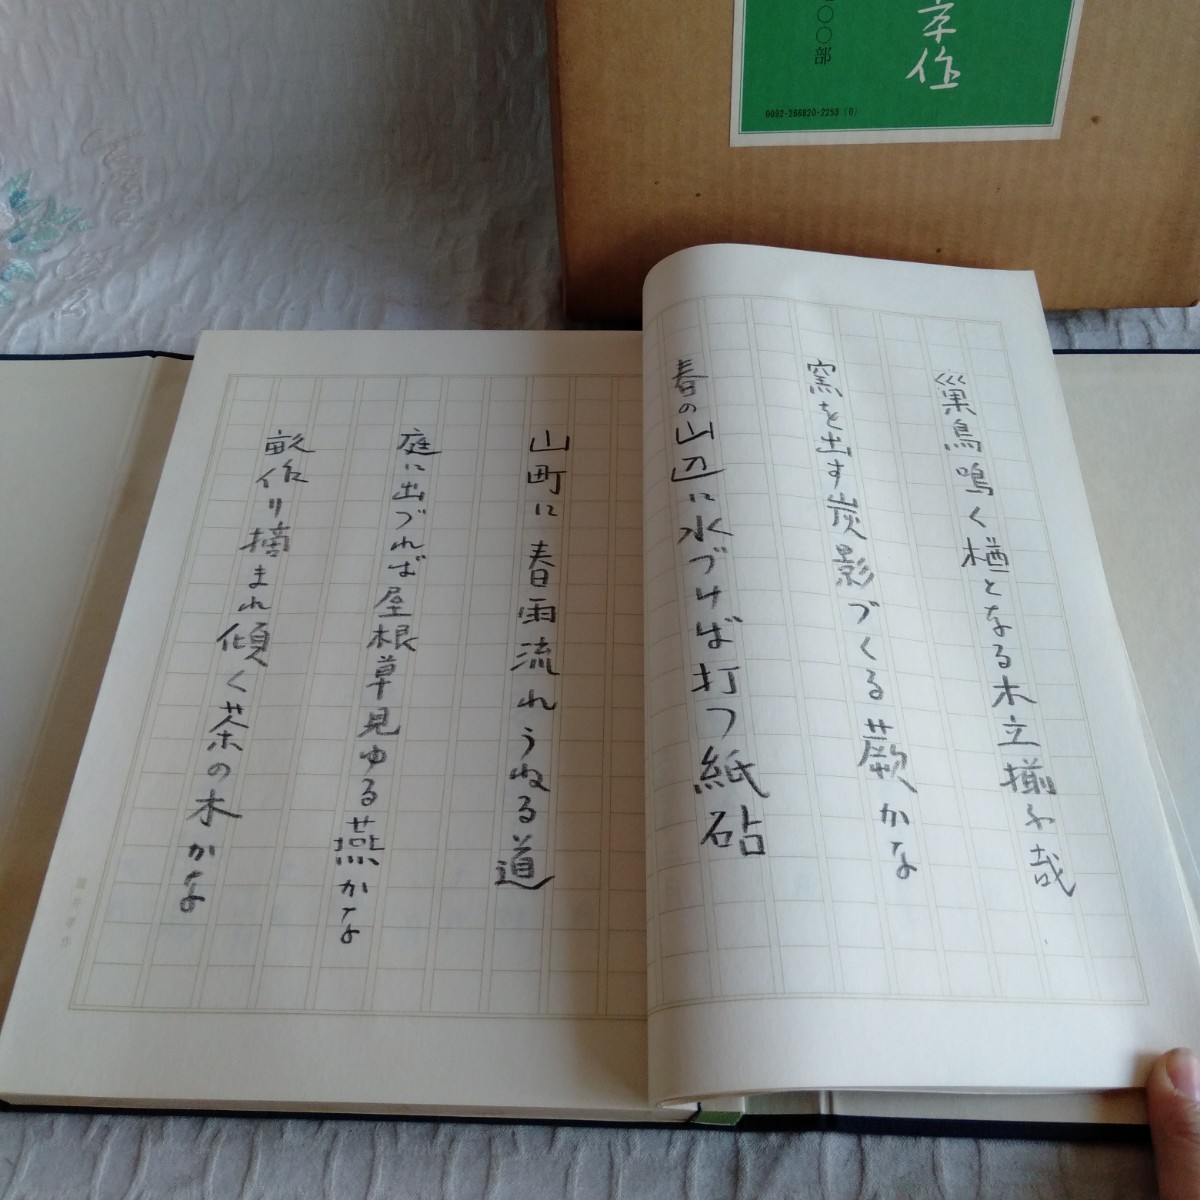 巣鳥鳴く楢となる木立揃ふ哉
窯を出す炭影づくる蕨かな
春の山辺に水づけば打つ紙砧
山町に春雨流れうねる道
庭に出づれば屋根草見ゆる燕かな
畝作り摘まれ傾く茶の木かな
〇〇部
作
0092-266820-2253 (0)